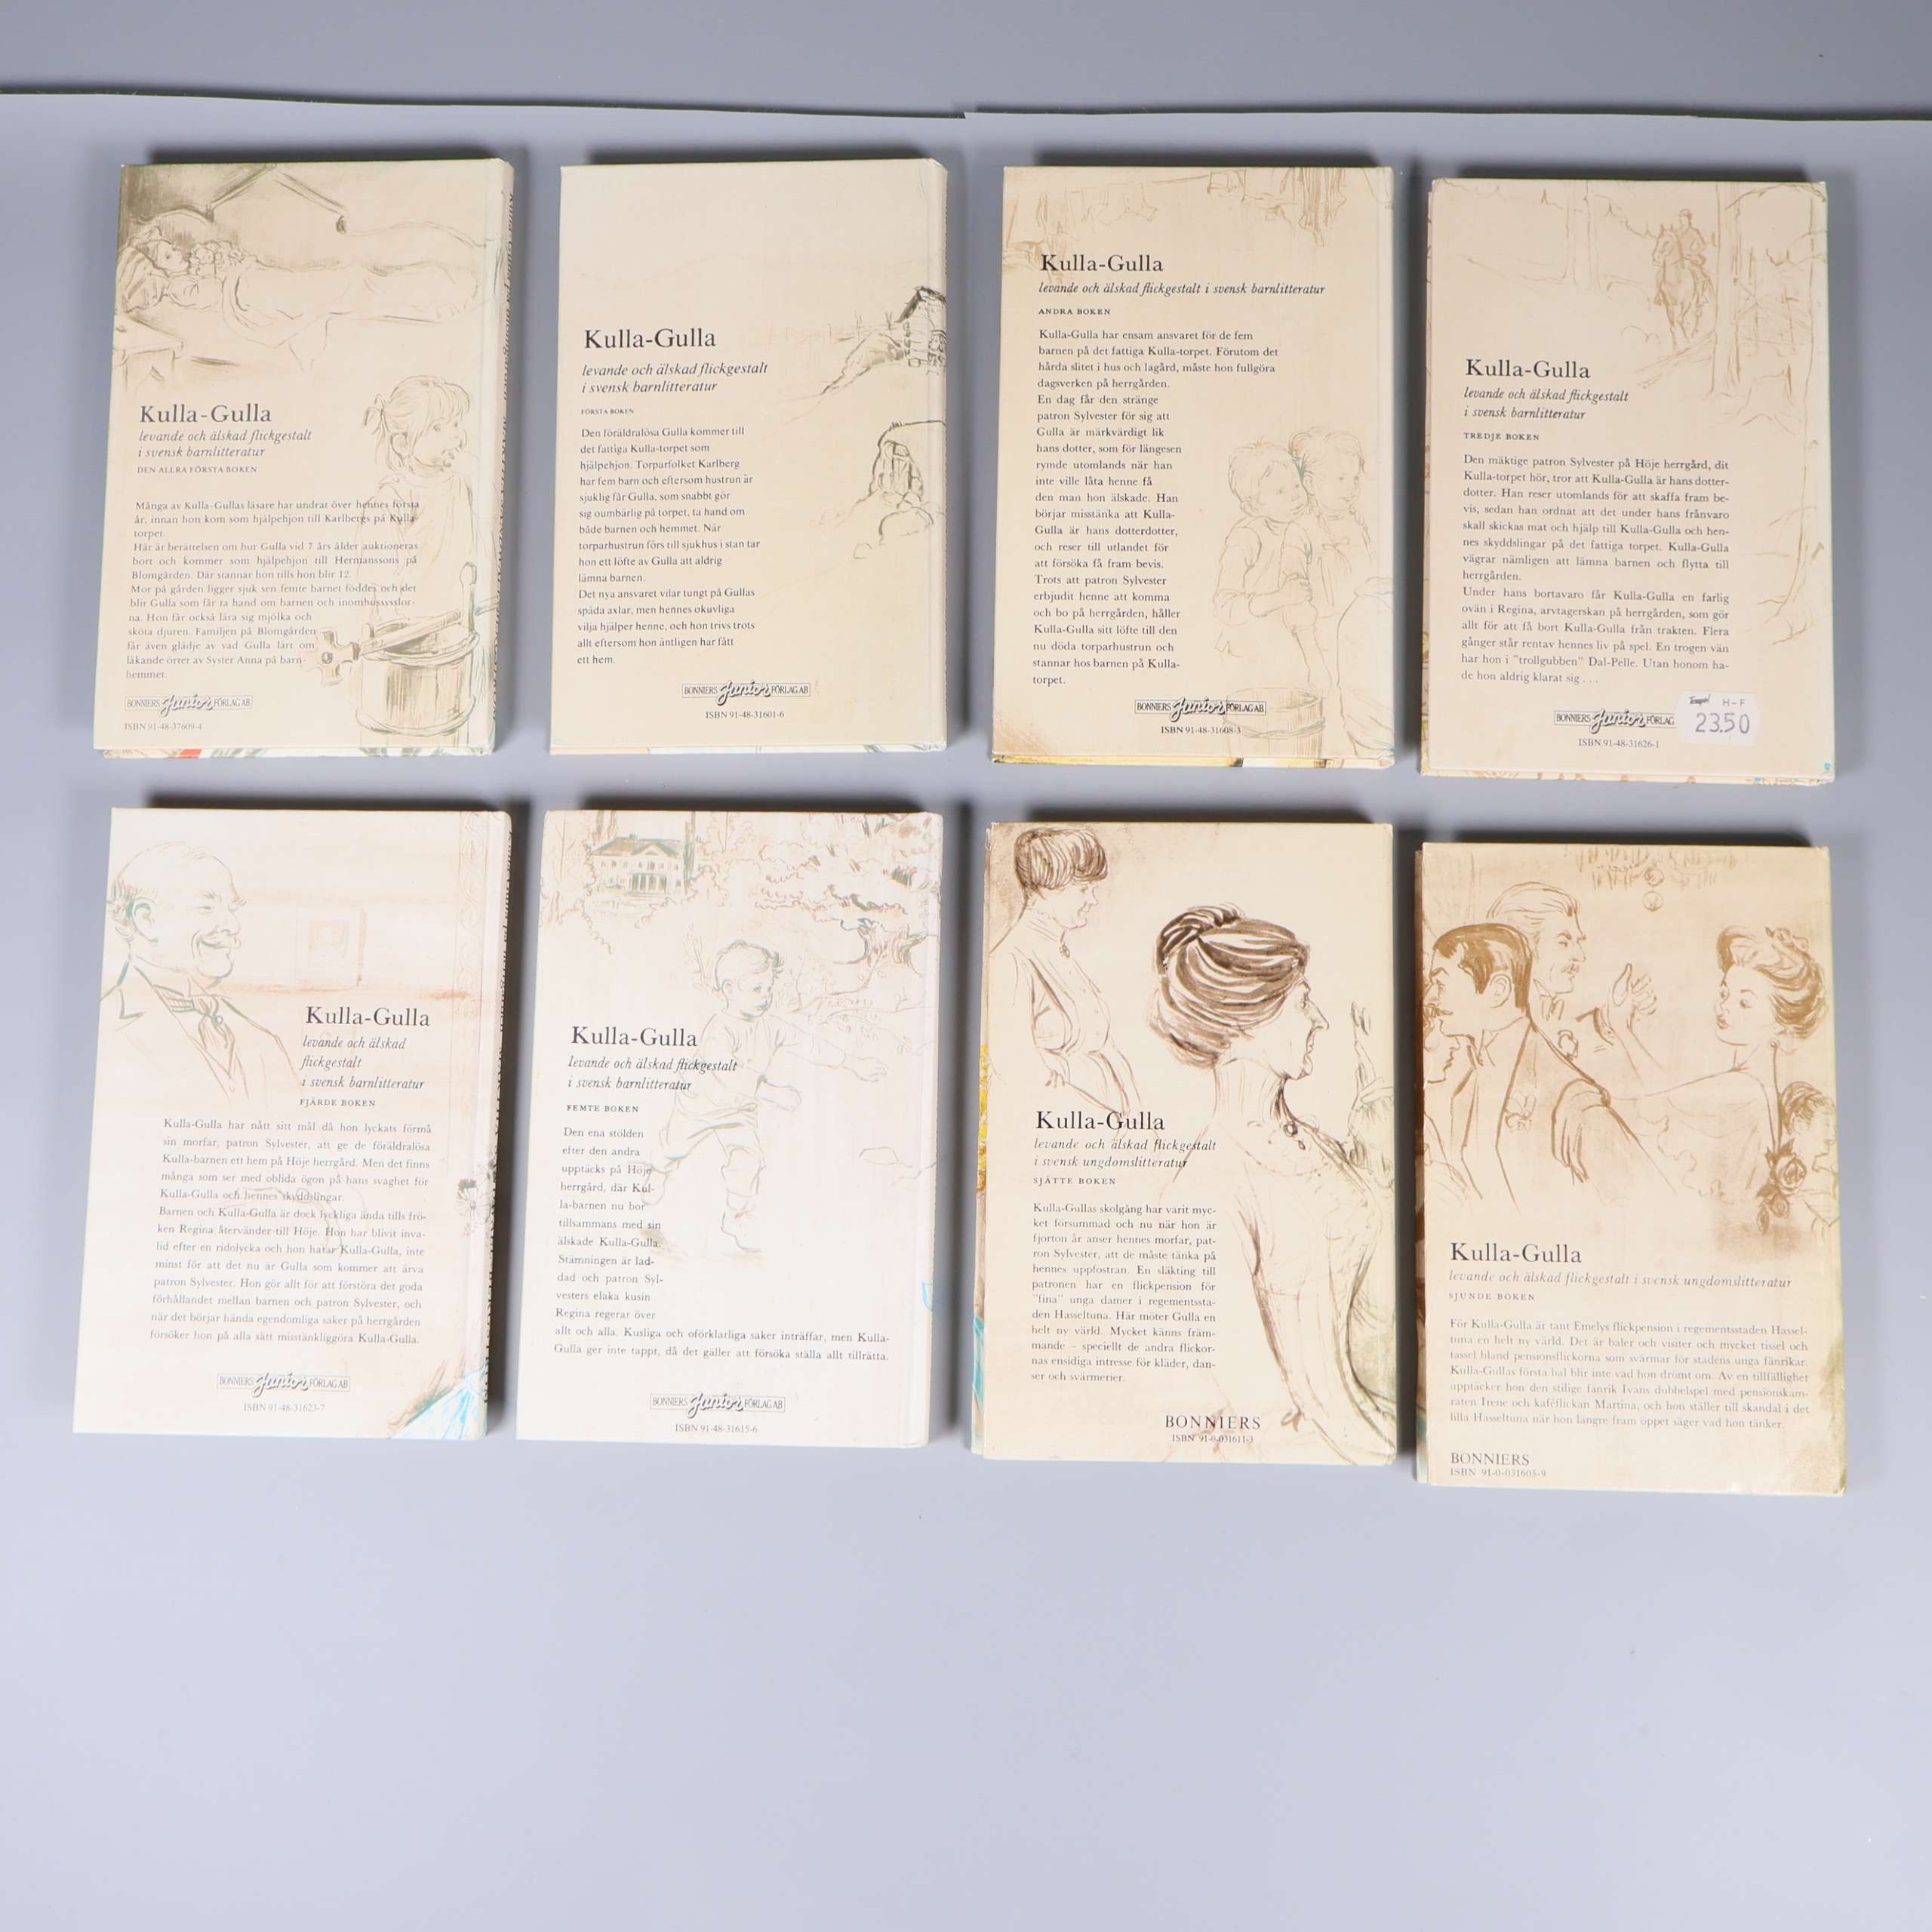 Kulla-Gulla
levande och älskad flickgestalt
i svensk barnlitteratur
DEN ALLRA FÖRSTA BOKEN
Många av Kulla-Gullas läsare har undrat över hennes första
år, innan hon kom som hjälpehjon till Karlbergs på Kulla-
torpet.
Här är berättelsen om hur Gulla vid 7 års ålder auktioneras
bort och kommer som hjälpehjon till Hermanssons på
Blomgården. Där stannar hon tills hon blir 12.
Mor på gården ligger sjuk sen femte barnet föddes och det
blir Gulla som får ta hand om barnen och inomhussysslor-
na. Hon får också lära sig mjölka och
sköta djuren. Familjen på Blomgården
får även glädje av vad Gulla lärt om
läkande örter av Syster Anna på barn-
hemmet.
BONNIERS Junior FÖRLAG AB
ISBN 91-48-37609-4
Kulla-Gulla
levande och älskad flickgestalt
i svensk barnlitteratur
FÖRSTA BOKEN
Den föräldralösa Gulla kommer till
det fattiga Kulla-torpet som
hjälpehjon. Torparfolket Karlberg
har fem barn och eftersom hustrun är
sjuklig får Gulla, som snabbt gör
sig oumbärlig på torpet, ta hand om
både barnen och hemmet. När
torparhustrun förs till sjukhus i stan tar
hon ett löfte av Gulla att aldrig
lämna barnen.
Det nya ansvaret vilar tungt på Gullas
späda axlar, men hennes okuvliga
vilja hjälper henne, och hon trivs trots
allt eftersom hon äntligen har fått
ett hem.
BONNIERS Junior FÖRLAG AB
ISBN 91-48-31601-6
Kulla-Gulla
levande och älskad flickgestalt i svensk barnlitteratur
ANDRA BOKEN
Kulla-Gulla har ensam ansvaret för de fem
barnen på det fattiga Kulla-torpet. Förutom det
hårda slitet i hus och lagård, måste hon fullgöra
dagsverken på herrgården.
En dag får den stränge
patron Sylvester för sig att
Gulla är märkvärdigt lik
hans dotter, som för längesen
rymde utomlands när han
inte ville låta henne få
den man hon älskade. Han
börjar misstänka att Kulla-
Gulla är hans dotterdotter,
och reser till utlandet för
att försöka få fram bevis.
Trots att patron Sylvester
erbjudit henne att komma
och bo på herrgården, håller
Kulla-Gulla sitt löfte till den
nu döda torparhustrun och
stannar hos barnen på Kulla-
torpet.
BONNIERS Junior FÖRLAG AB
ISBN 91-48-31608-3
Kulla-Gulla
levande och älskad flickgestalt
i svensk barnlitteratur
TREDJE BOKEN
Den mäktige patron Sylvester på Höje herrgård, dit
Kulla-torpet hör, tror att Kulla-Gulla är hans dotter-
dotter. Han reser utomlands för att skaffa fram be-
vis, sedan han ordnat att det under hans frånvaro
skall skickas mat och hjälp till Kulla-Gulla och hen-
nes skyddslingar på det fattiga torpet. Kulla-Gulla
vägrar nämligen att lämna barnen och flytta till
herrgården.
Under hans bortavaro får Kulla-Gulla en farlig
ovän i Regina, arvtagerskan på herrgården, som gör
allt för att få bort Kulla-Gulla från trakten. Flera
gånger står rentav hennes liv på spel. En trogen vän
har hon i "trollgubben" Dal-Pelle. Utan honom ha-
de hon aldrig klarat sig . . .
BONNIERS Junior FÖRLAG
ISBN 91-48-31626-1
H-F
23.50
Kulla-Gulla
levande och älskad
flickgestalt
i svensk barnlitteratur
FJÄRDE BOKEN
Kulla-Gulla har nått sitt mål då hon lyckats förmå
sin morfar, patron Sylvester, att ge de föräldralösa
Kulla-barnen ett hem på Höje herrgård. Men det finns
många som ser med oblida ögon på hans svaghet för
Kulla-Gulla och hennes skyddslingar.
Barnen och Kulla-Gulla är dock lyckliga ända tills frö-
ken Regina återvänder till Höje. Hon har blivit inva-
lid efter en ridolycka och hon hatar Kulla-Gulla, inte
minst för att det nu är Gulla som kommer att ärva
patron Sylvester. Hon gör allt för att förstöra det goda
förhållandet mellan barnen och patron Sylvester, och
när det börjar hända egendomliga saker på herrgården
försöker hon på alla sätt misstänkliggöra Kulla-Gulla.
BONNIERS Junior FÖRLAG AB
ISBN 91-48-31623-7
Kulla-Gulla
levande och älskad flickgestalt
i svensk barnlitteratur
FEMTE BOKEN
Den ena stölden
efter den andra
upptäcks på Höje
herrgård, där Kul-
la-barnen nu bor
tillsammans med sin
älskade Kulla-Gulla.
Stämningen är lad-
dad och patron Syl-
vesters elaka kusin
Regina regerar över
allt och alla. Kusliga och oförklarliga saker inträffar, men Kulla-
Gulla ger inte tappt, då det gäller att försöka ställa allt tillrätta.
BONNIERS Junior FÖRLAG AB
ISBN 91-48-31615-6
Kulla-Gulla
levande och älskad flickgestalt
i svensk ungdomslitteratur
SJÄTTE BOKEN
Kulla-Gullas skolgång har varit myc-
ket försummad och nu när hon är
fjorton år anser hennes morfar, pat-
ron Sylvester, att de måste tänka på
hennes uppfostran. En släkting till
patronen har en flickpension för
"fina" unga damer i regementssta-
den Hasseltuna. Här möter Gulla en
helt ny värld. Mycket känns främ-
mande – speciellt de andra flickor-
nas ensidiga intresse för kläder, dan-
ser och svärmerier.
BONNIERS
ISBN 91-0-031611-3
Kulla-Gulla
levande och älskad flickgestalt i svensk ungdomslitteratur
SJUNDE BOKEN
För Kulla-Gulla är tant Emelys flickpension i regementsstaden Hassel-
tuna en helt ny värld. Det är baler och visiter och mycket tissel och
tassel bland pensionsflickorna som svärmar för stadens unga fänrikar.
Kulla-Gullas första bal blir inte vad hon drömt om. Av en tillfällighet
upptäcker hon den stilige fänrik Ivans dubbelspel med pensionskam-
raten Irene och kaféflickan Martina, och hon ställer till skandal i det
lilla Hasseltuna när hon längre fram öppet säger vad hon tänker.
BONNIERS
ISBN 91-0-031605-9